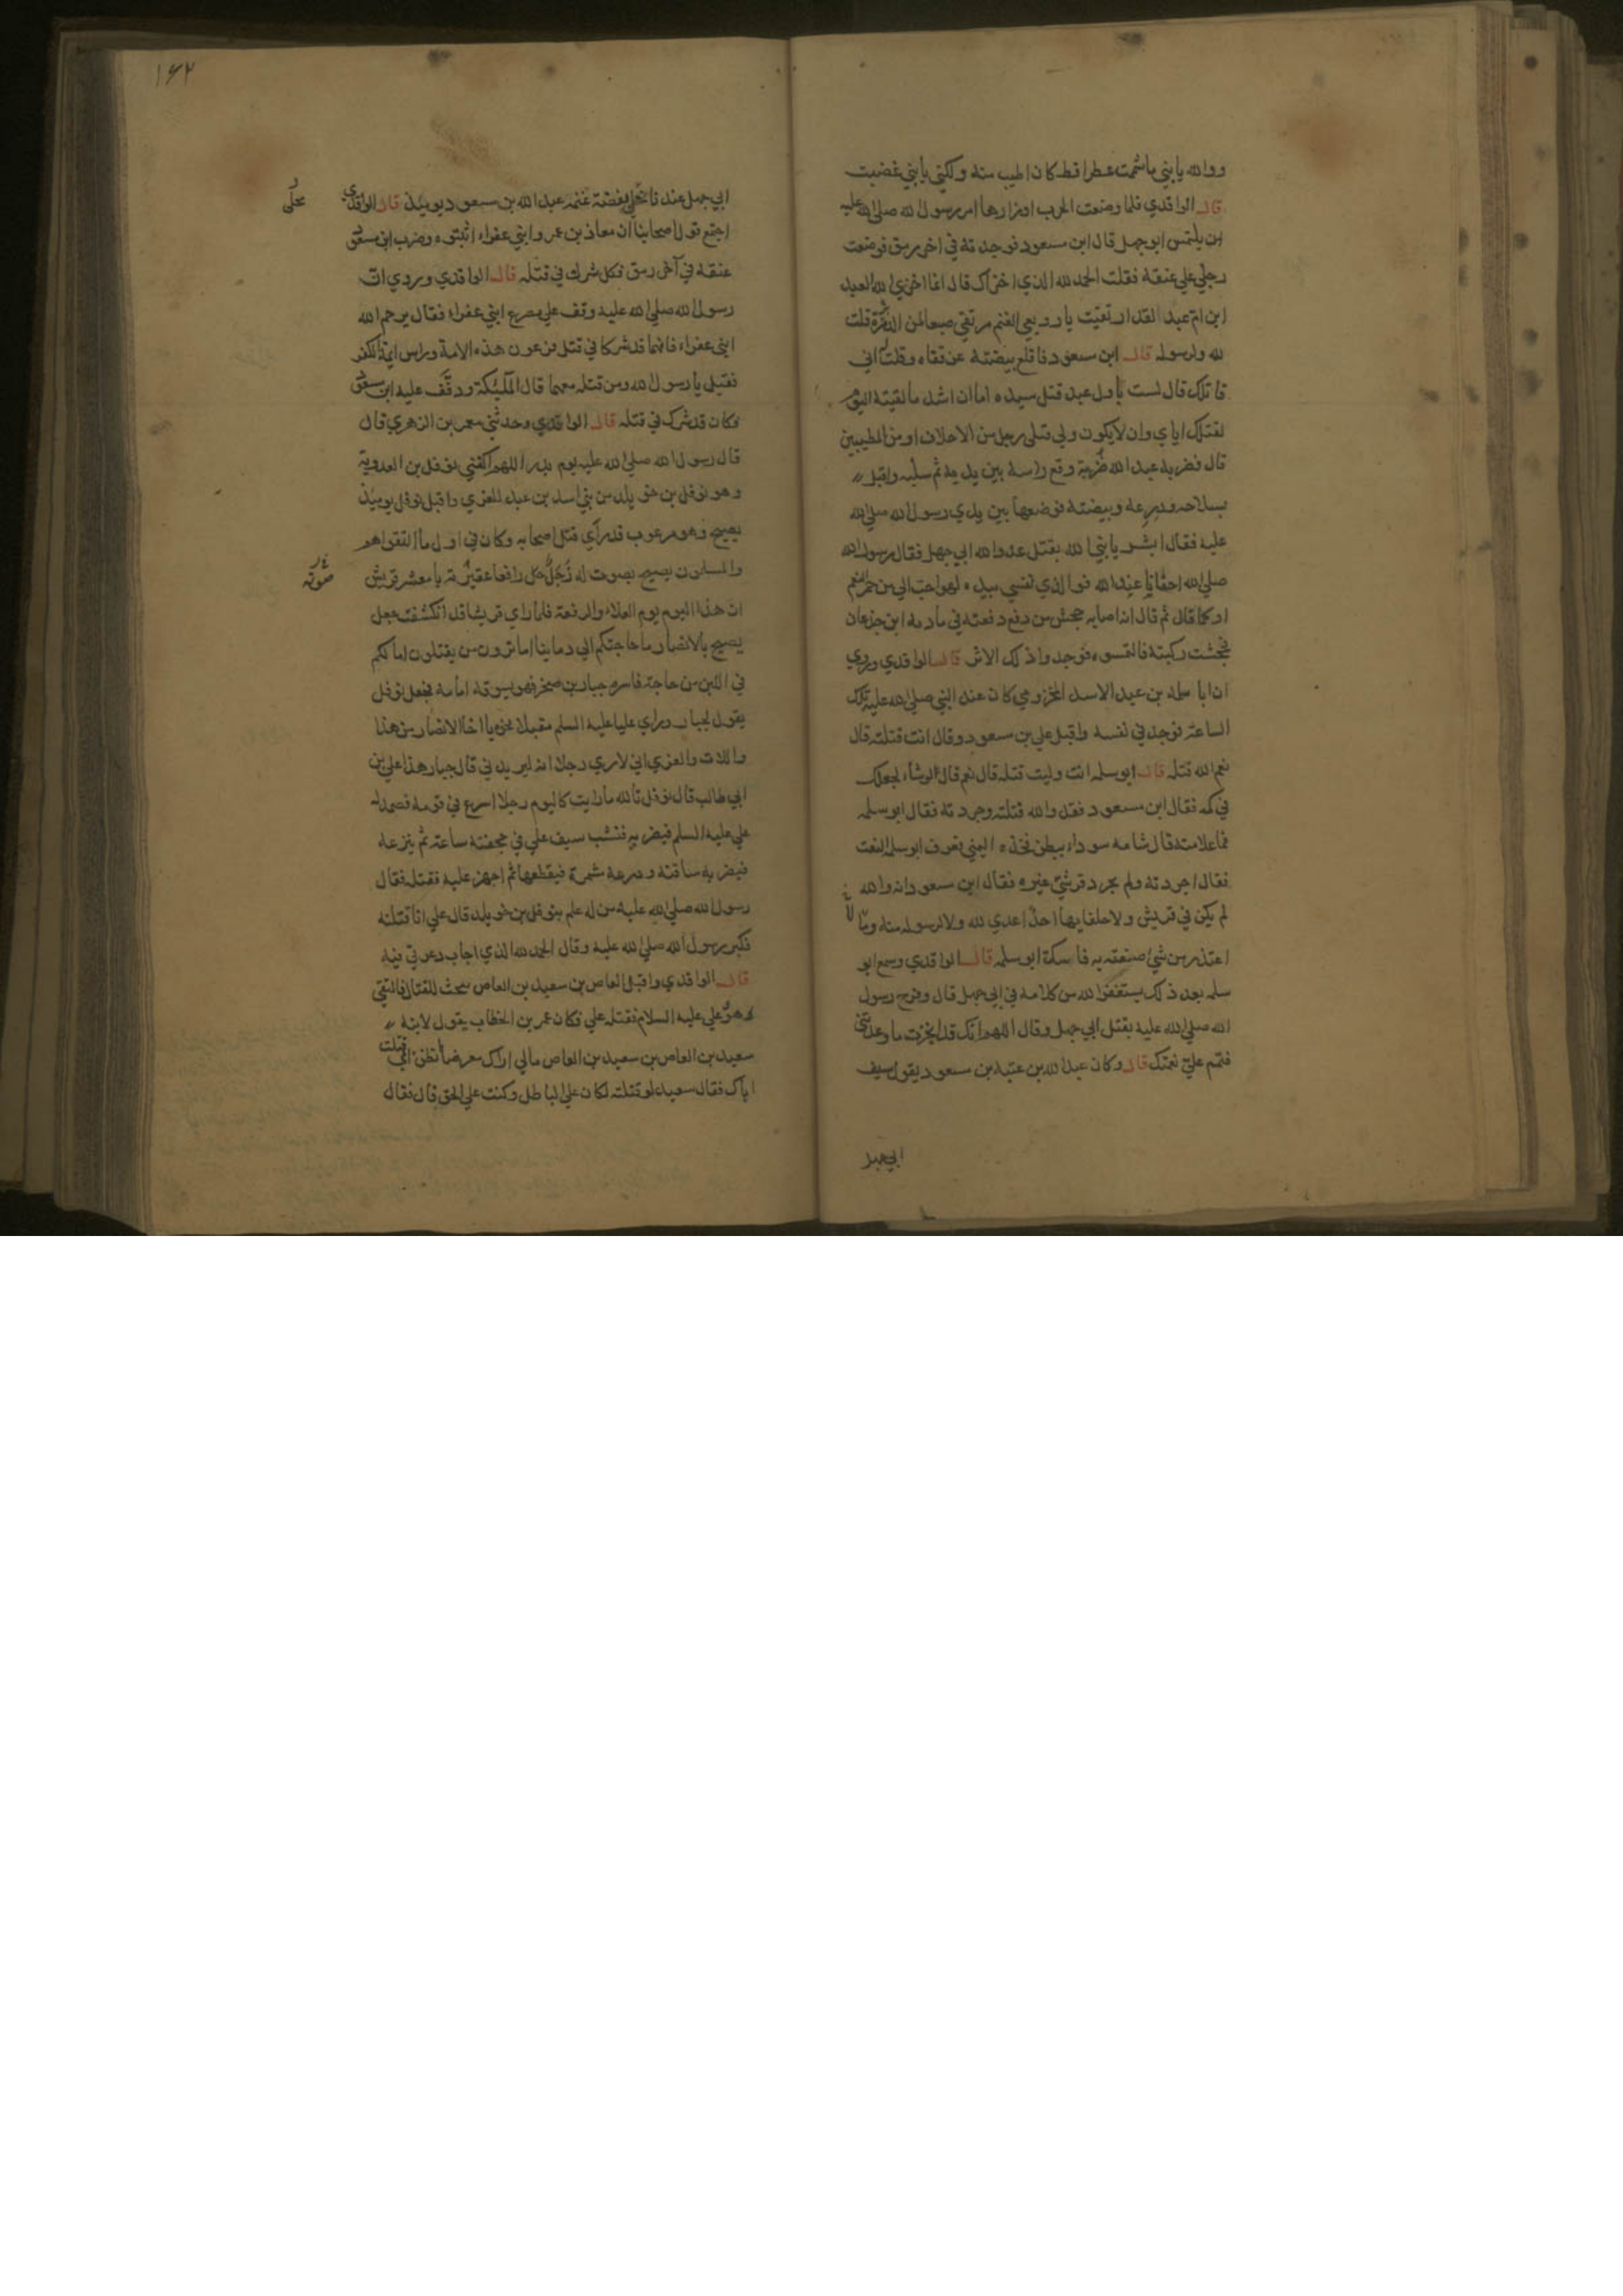 ووالله يا بني ما شممت عطرا قط كان اطيب منه ولكني يا بني غضبت
قال الواقدي فلما وضعت الحرب اوزارها امر رسول الله صلى الله عليه
ان يلتمس ابو جهل قال ابن مسعود فوجدته في اخر رمق فوضعت
رجلي على عنقه فقلت الحمد لله الذي اخزاك قال انما اخزى الله العبد
ابن ام عبد لقد ارتقيت يا رويعي الغنم مرتقى صعبا لمن الدبرة قلت
لله ولرسوله قال ابن مسعود فاقلع بيضته عن قفاه وقلت اني
قاتلك قال لست باول عبد قتل سيده اما ان اشد ما لقيته اليوم
لقتلك اياي وان لا يكون ولي قتلي رجل من الاحلاف او من المطيبين
قال فضربه عبد الله ضربة وقع راسه بين يديه ثم سلبه واقبل
بسلاحه ودرعه وبيضته فوضعها بين يدي رسول الله صلى الله
عليه فقال ابشر يا نبي الله بقتل عدو الله ابي جهل فقال رسول الله
صلى الله احقا يا عبد الله فوالذي نفسي بيده لهو احب الي من حمر النعم
او كما قال ثم قال انه اصابه جحش من دفع دفعته في مأدبة ابن جذعان
فجحشت ركبته فالتمسوه فوجدوا ذلك الاثر قال الواقدي وروي
ان ابا سلمه بن عبد الاسد المخزومي كان عند النبي صلى الله عليه تلك
الساعة فوجد في نفسه واقبل على بن مسعود وقال انت قتلته قال
نعم الله قتله قال ابو سلمه انت وليت قتله قال نعم قال لو شاء لجعلك
في كمه فقال ابن مسعود فقد والله قتلته وجردته فقال ابو سلمه
فما علامته قال شامه سوداء ببطن فخذه اليمنى فعرف ابو سلمه النعت
فقال اجردته ولم يجرد قرشي غيره فقال ابن مسعود انه والله
لم يكن في قريش ولا حلفايها احد اعدى لله ولا لرسوله منه وما
اعتذر من شئ صنعته به فاسكت ابو سلمه قال الواقدي وسمع ابو
سلمه بعد ذلك يستغفر الله من كلامه في ابي جهل قال وفرح رسول
الله صلى الله عليه بقتل ابي جهل وقال اللهم انك قد انجزت ما وعدتني
فتمم علي نعمتك قال وكان عبد الله بن عتبه بن مسعود يقول سيف
ابي جهل
١٦٢
ابي جهل عندنا محلى بفضة غنمه عبد الله بن مسعود يومئذ قال الواقدي
محلى
اجتمع قول اصحابنا ان معاذ بن عمر وابني عفراء اثبتوه وضرب ابن مسعود
عنقه في آخر رمق فكل شرك في قتله قال الواقدي وروي ان
رسول الله صلى الله عليه وقف على مصرع ابني عفراء فقال يرحم الله
ابني عفراء فانهما قد شركا في قتل فرعون هذه الامة وراس ايمة الكفر
فقيل يا رسول الله ومن قتله معهما قال الملئكة ودفف عليه ابن مسعود
فكان قد شرك في قتله قال الواقدي وحدثني معمر بن الزهري قال
قال رسول الله صلى الله عليه يوم بدر اللهم اكفني نوفل بن العدوية
وهو نوفل بن خويلد من بني اسد بن عبد العزي واقبل نوفل يومئذ
يصيح وهو مرعوب قد رأى قتل اصحابه وكان في اول ما التقوا هم
والمسلمون يصيح بصوت له زجل رافعا عقيرته يا معشر قريش
صوته
ان هذا اليوم يوم العلاء والرفعة فلما راى قريشا قد انكشفت جعل
يصيح بالانصار ما حاجتكم الى دماينا اما ترون من يقتلون اما لكم
في اللبن من حاجة فاسره جبار بن صخر فهو يسوقه امامه فجعل نوفل
يقول لجبار وراى عليا عليه السلم مقبلا نحوه يا اخا الانصار من هذا
واللات والعزي اني لارى رجلا انه ليريدني قال جبار هذا علي بن
ابي طالب قال نوفل تالله ما رايت كاليوم رجلا اسرع في قومه فصمد له
علي عليه السلم فيضربه فنشب سيف علي في جحفته ساعة ثم ينزعه
فيضرب به ساقته ودرعه مشمرة فيقطعها ثم اجهز عليه فقتله فقال
رسول الله صلى الله عليه من له علم بنوفل بن خويلد قال علي انا قتلته
فكبر رسول الله صلى الله عليه وقال الحمد لله الذي اجاب دعوتي فيه
قال الواقدي واقبل العاص بن سعيد بن العاص يبحث للقتال فالتقى
هو وعلي عليه السلام فقتله علي فكان عمر بن الخطاب يقول لابنه
سعيد بن العاص بن سعيد بن العاص مالي اراك معرضا تظن اني قتلت
اباك فقال سعيد لو قتلته لكان على الباطل وكنت على الحق قال فقال